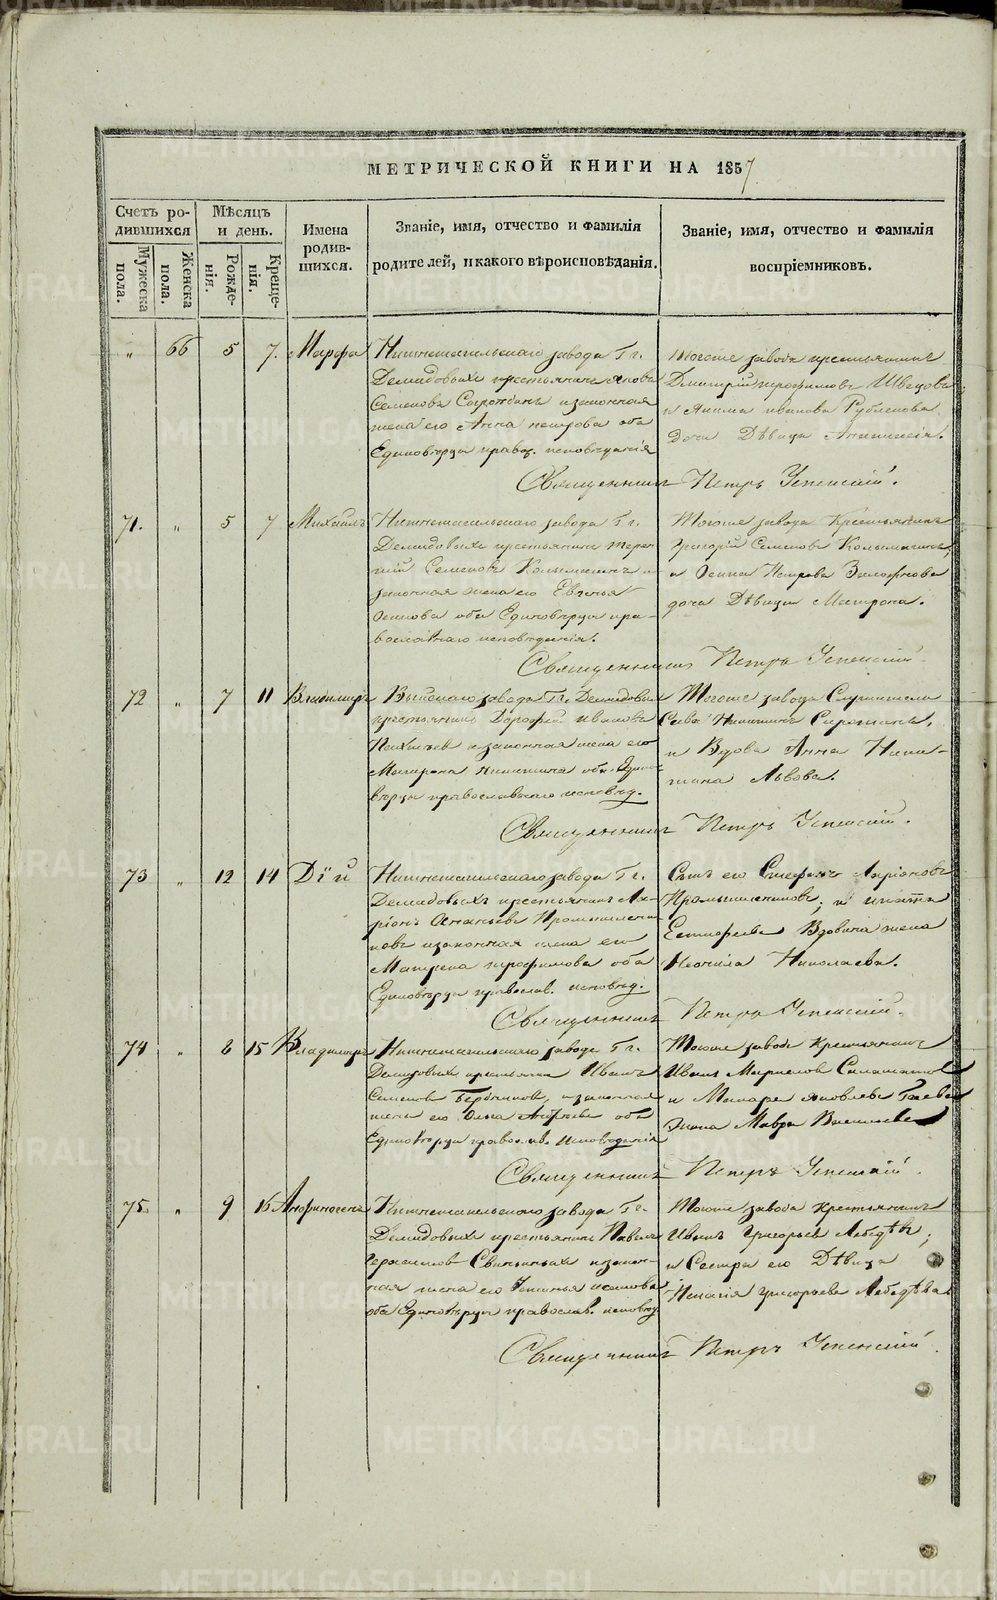 МЕТРИЧЕСКОЙ КНИГИ НА 1857
Счетъ ро-
дившихся
Мужеска
пола.
Женска
пола.
Мѣсяцъ
и день.
Рожде-
нія.
Креще-
нія.
Имена
родив-
шихся.
Званіе, имя, отчество и фамилія
родителей, и какого вѣроисповѣданія.
Званіе, имя, отчество и фамилія
воспріемниковъ.
" 66 5 7. Марфа
Нижнетагильскаго завода Гг.
Демидовыхъ крестьянинъ
Семеновъ и законная
жена его Анна Петрова оба
Единовѣрцы правос. исповѣданія
Тогоже завода крестьянинъ
Дмитрій Трофимовъ Швецовъ
и Якима Иванова Рублевова
дочь Дѣвица
Священникъ Петръ Успенскій.
71. " 5 7 Михаилъ
Нижнетагильскаго завода Гг.
Демидовыхъ крестьянинъ Терен-
тій Семеновъ и
законная жена его Евгенья
Осипова оба Единовѣрцы пра-
вославнаго исповѣданія.
Тогоже завода Крестьянинъ
Григорій Семеновъ
и Осипа Петрова
дочь Дѣвица Матрона.
Священникъ Петръ Успенскій.
72 " 7 11 Владимиръ
Выйскаго завода Гг. Демидовыхъ
крестьянинъ Дорофей Ивановъ
и законная жена его
Матрона Никитина оба Едино-
вѣрцы православнаго исповѣд.
Тогоже завода Служитель
Сава Никитинъ
и Вдова Анна Ники-
тина Львова.
Священникъ Петръ Успенскій.
73 " 12 14 Дій
Нижнетагильскаго завода Гг.
Демидовыхъ крестьянинъ Ла-
ріонъ Ананьевъ Промышленни-
ковъ и законная жена его
Матрена Трофимова оба
Единовѣрцы православ. исповѣд.
Сынъ его Стефанъ Ларіоновъ
Промышленниковъ; и
Вдовина жена
Неонила Николаева.
Священникъ Петръ Успенскій.
74 " 8 15 Владимиръ
Нижнетагильскаго завода Гг.
Демидовыхъ крестьянинъ Иванъ
Семеновъ и законная
жена его Ольга оба
Единовѣрцы православ. исповѣданія
Тогоже завода Крестьянинъ
Иванъ
и Макара Яковлева
жена Мавра Васильева
Священникъ Петръ Успенскій.
75. " 9 16 Анфиногенъ
Нижнетагильскаго завода Гг.
Демидовыхъ крестьянинъ Павелъ
и закон-
ная жена его Устинья
оба Единовѣрцы православ. исповѣд
Тогоже завода крестьянинъ
Иванъ Григорьевъ Лебедѣвъ;
и Сестра его Дѣвица
Григорьева Лебедѣва.
Священникъ Петръ Успенскій.
METRIKI.GASO-URAL.RU